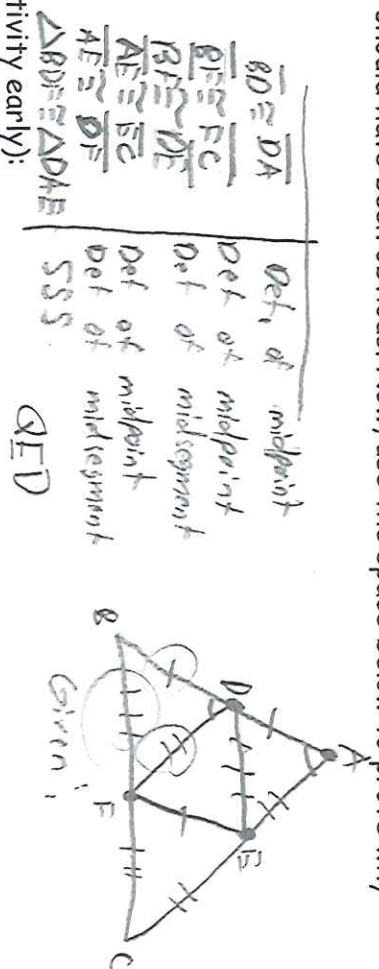 BD ≅ DA  Def. of midpoint
BF ≅ FC  Def of midpoint
BF ≅ DE  Def of midsegment
AE ≅ EC  Def of midpoint
AE ≅ DF  Def of midsegment
△BDF ≅ △DAE  SSS.
QED
tivity early):
A
B
D
E
F
C
Given: